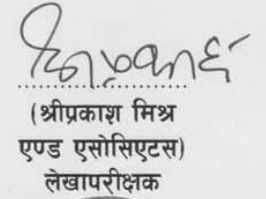 (श्रीप्रकाश मिश्र
एण्ड एसोसिएटस)
लेखापरीक्षक